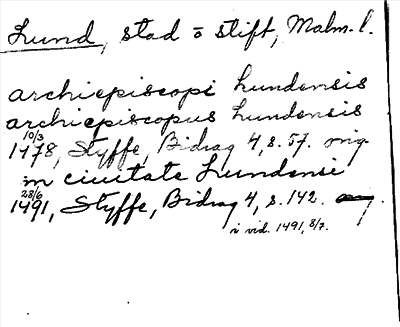 Lund, stad o stift, Malm. l.
archiepiscopi Lundensis
archiepiscopus Lundensis
10/3
1478, Styffe, Bidrag 4, s. 57. orig.
in ciuitate Lundensi
28/6
1491, Styffe, Bidrag 4, s. 142.
i vid. 1491, 8/7.